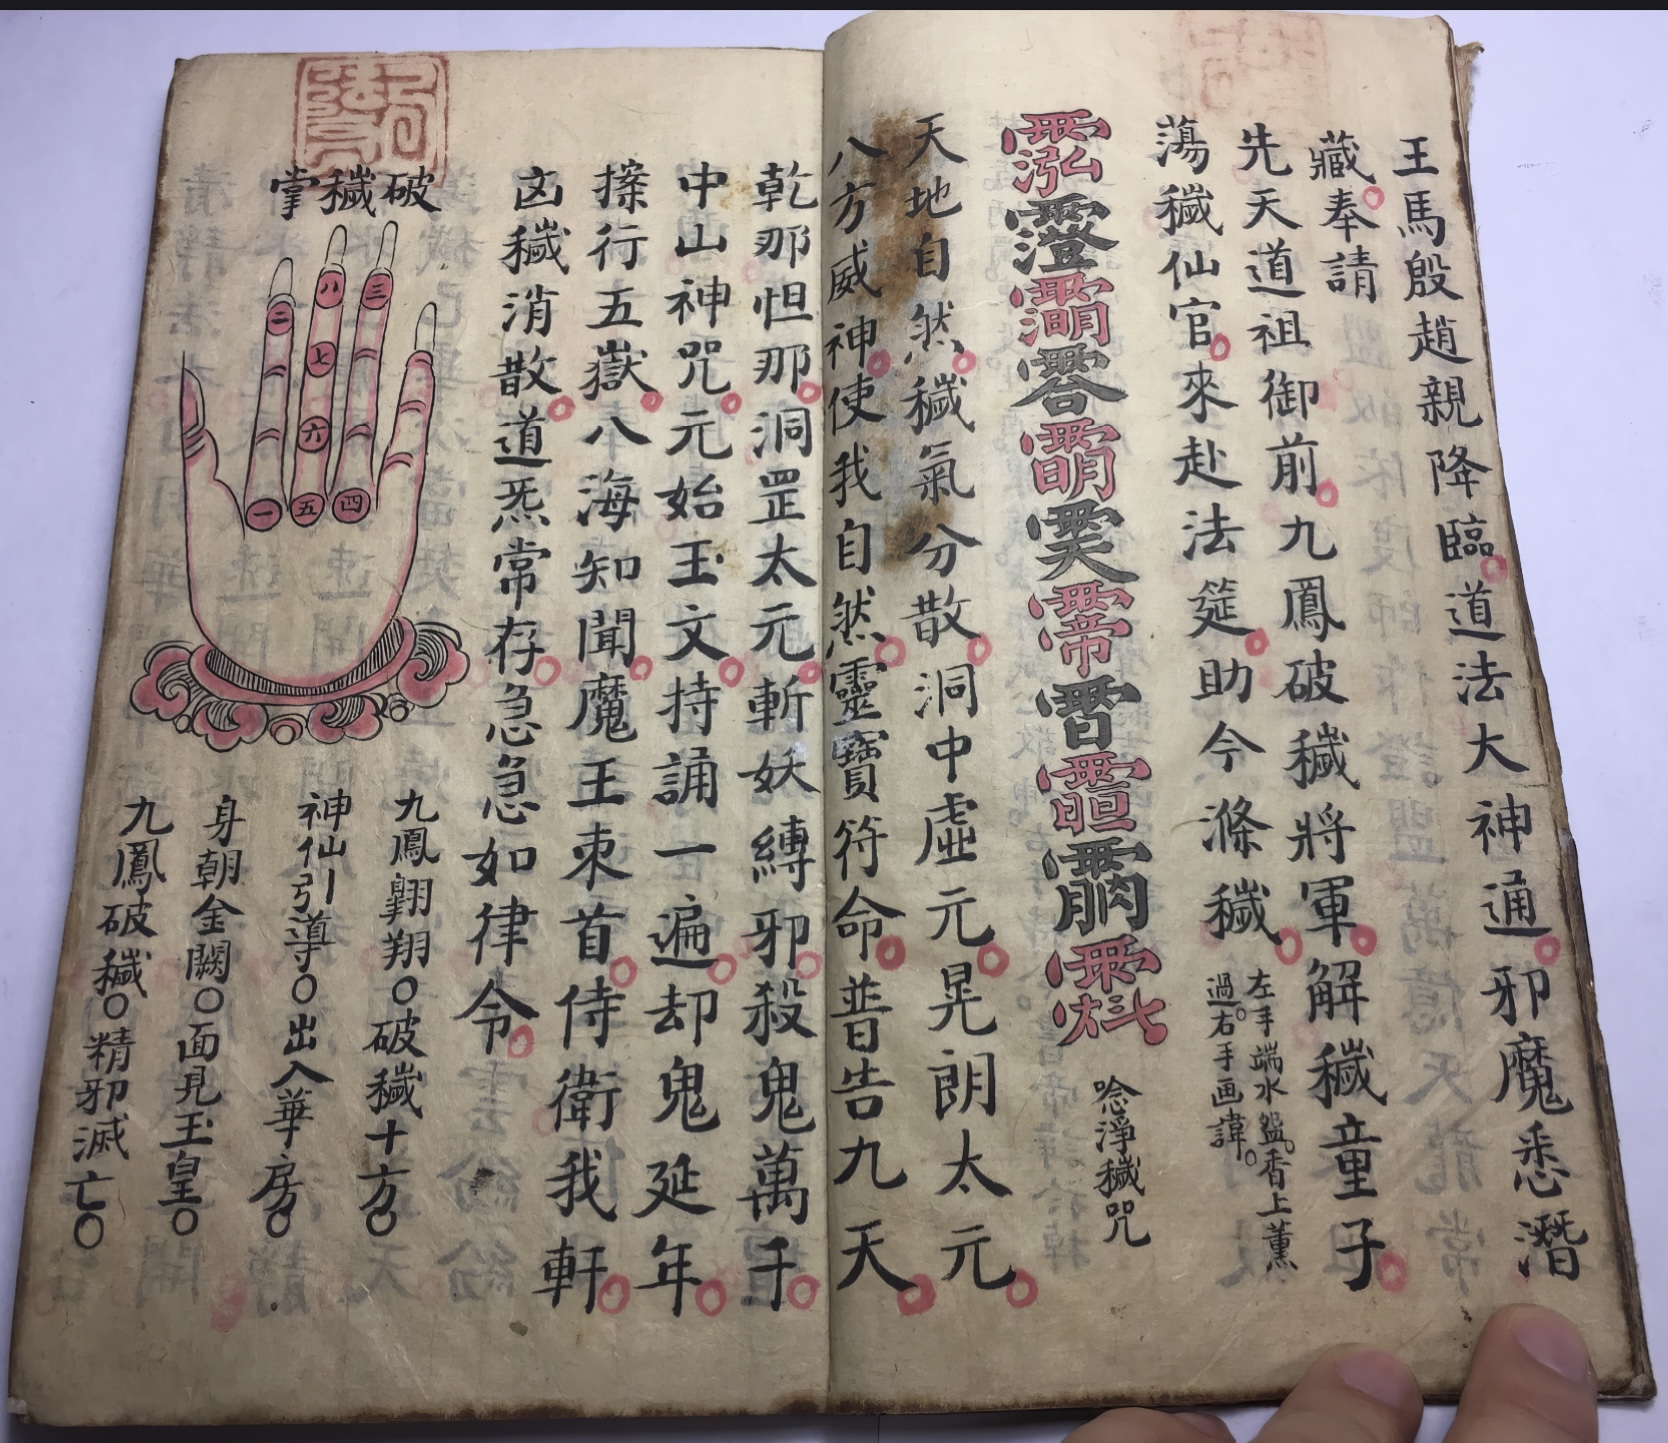 王馬殷趙親降臨。道法大神通。邪魔悉潛
藏。奉請
先天道祖御前。九鳳破穢將軍。解穢童子。
蕩穢仙官。來赴法筵。助今滌穢。
左手端水盌。香上薰
過。右手画諱。
唸淨穢咒
天地自然。穢氣分散。洞中虛元。晃朗太元。
八方威神。使我自然。靈寶符命。普告九天。
乾那怛那。洞罡太元。斬妖縛邪。殺鬼萬千。
中山神咒。元始玉文。持誦一遍。却鬼延年。
行五嶽。八海知聞。魔王束首。侍衛我軒。
㐫穢消散。道炁常存。急急如律令。
破穢掌
一
二
三
四
五
六
七
八
九鳳翺翔○破穢十方○
神仙引導○出入華房○
身朝金闕○面見玉皇○
九鳳破穢○精邪滅亡○